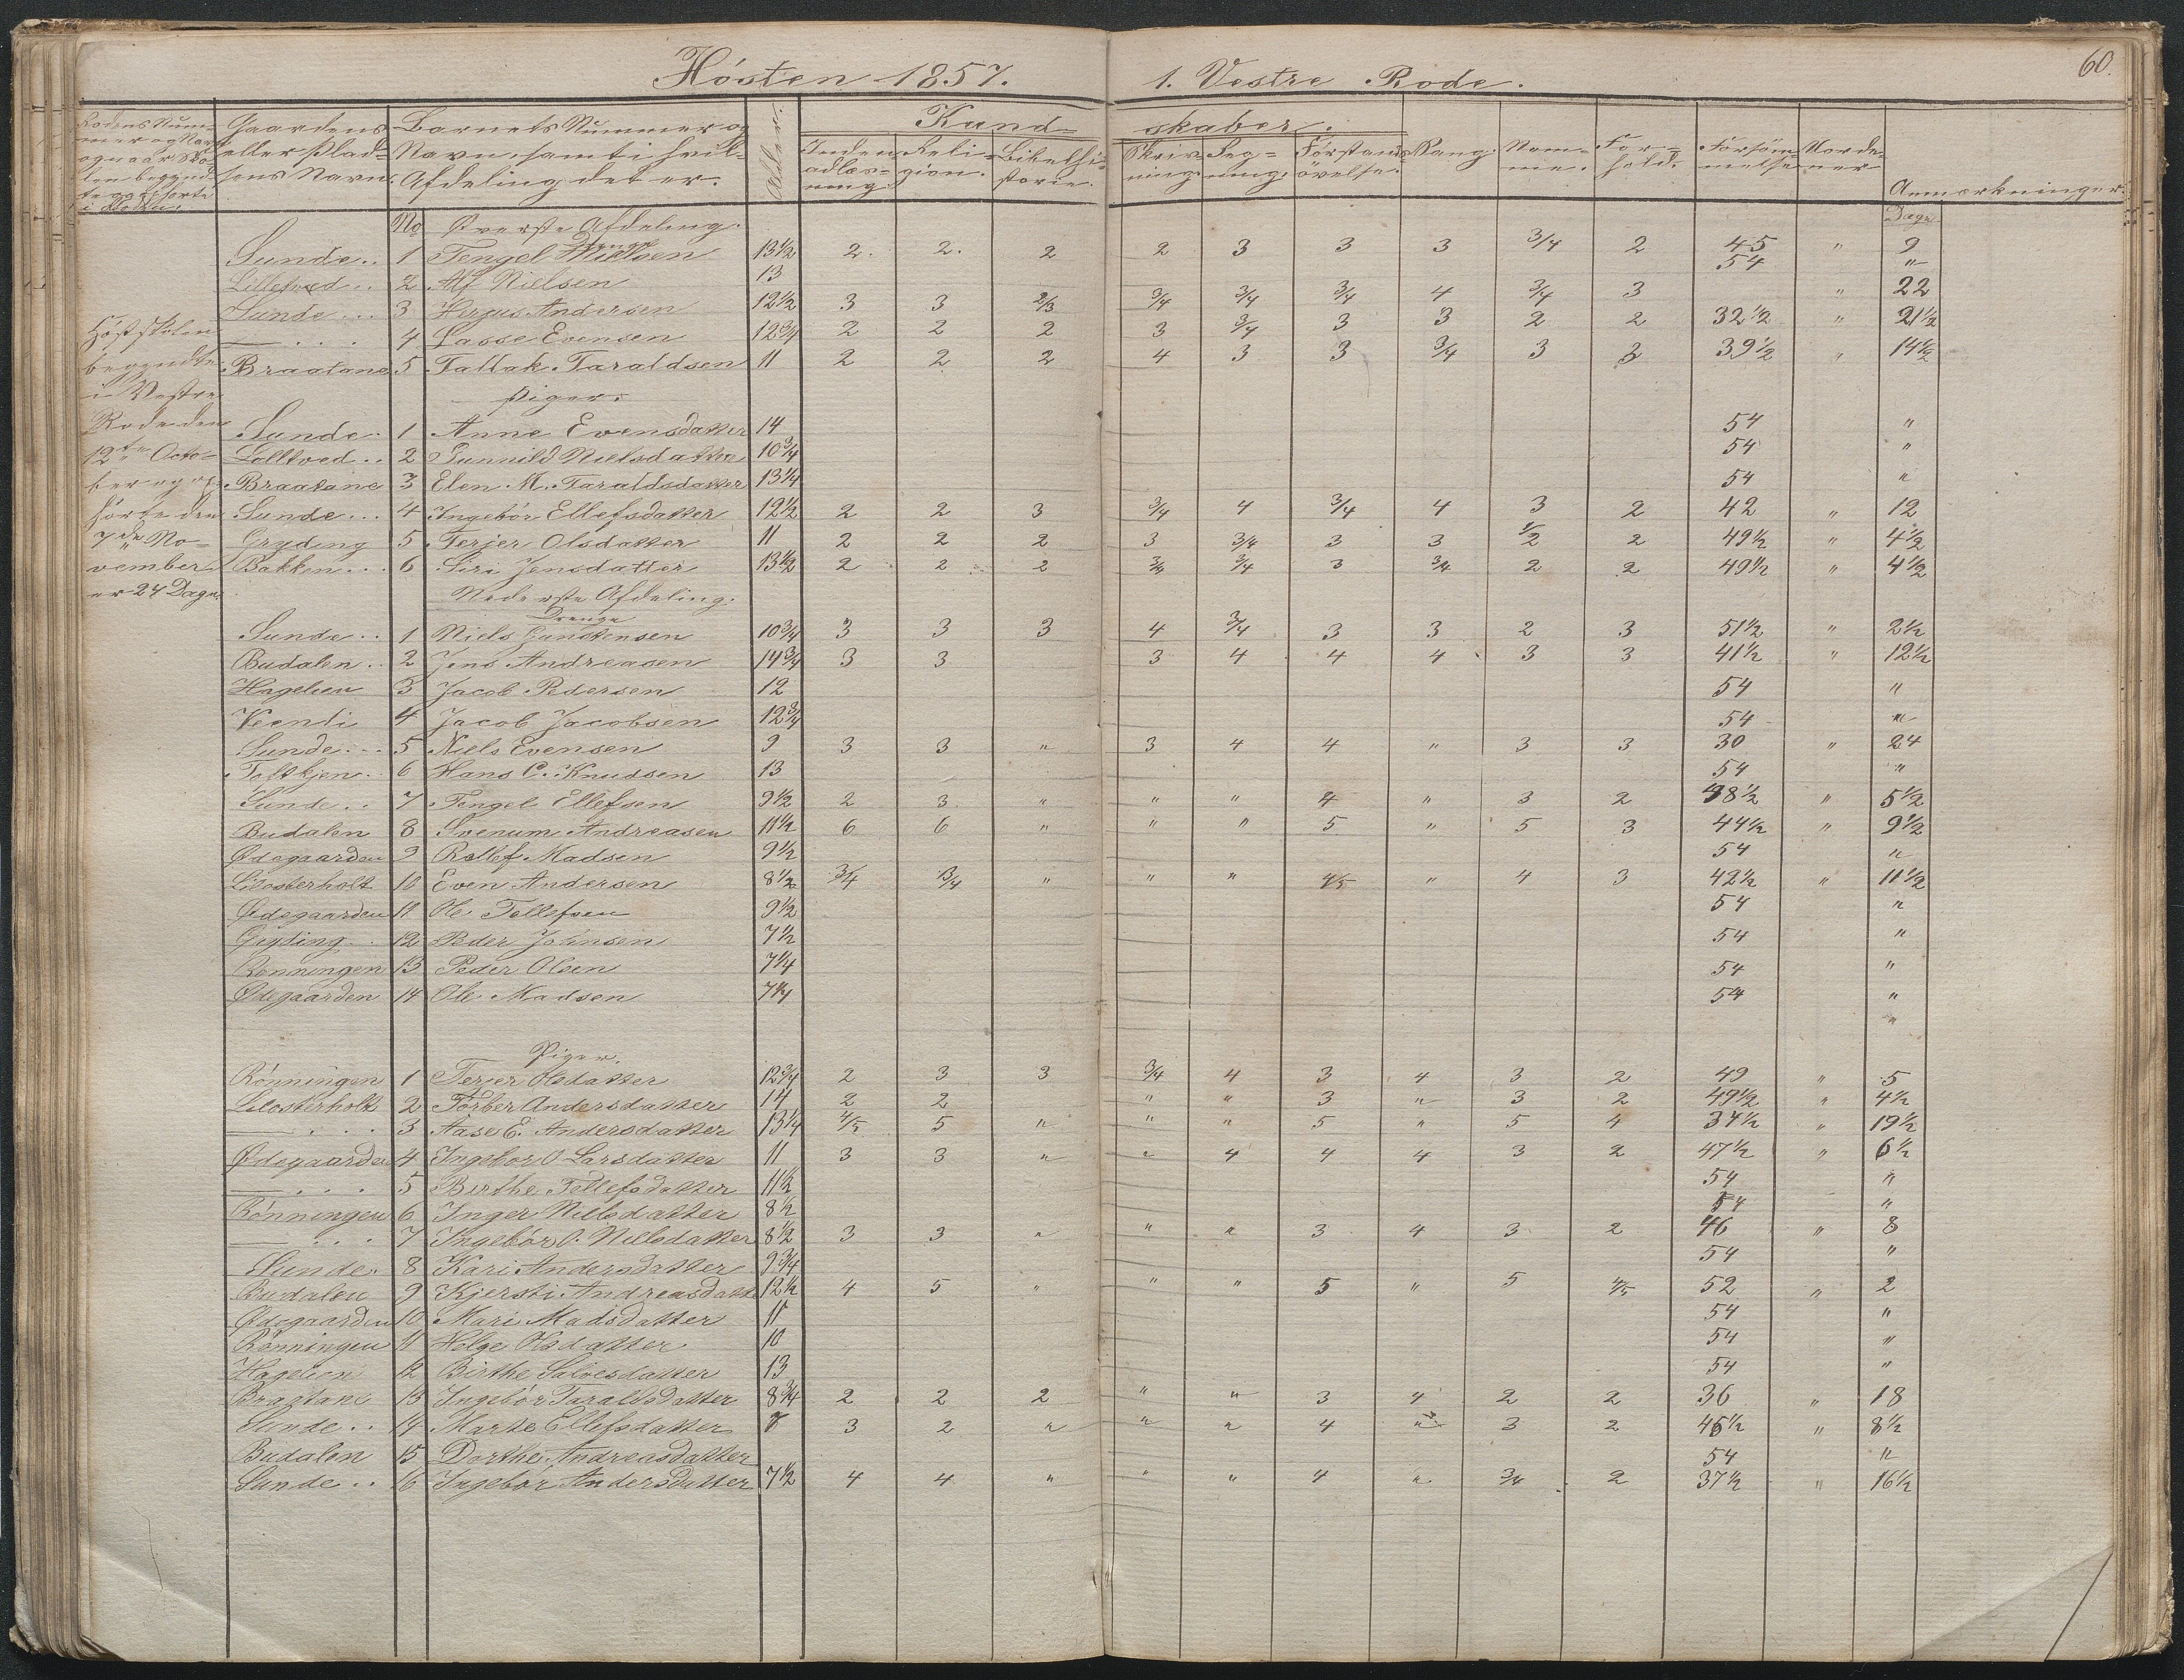 Hösten 1857. 1. Vestre Rode. 60.
Rodens Num- Gaardens Barnets Nummer og Alder. Kund- skaber.
eller Plad- Navn, samt i hvil- Inden- Reli- Bibelhi- Skriv- Reg- Forstands Sang. Nem- For- Forsöm- Anmærkninger.
sens Navn. Afdeling det er. gion. storie. ning. ning. övelse. me. hold. melse
No Øverste Afdeling. Dage
Drenge
Sunde.. 1 Tengel Nielsen 13½ 2. 2. 2 2 3 3 3 3/4 2 45 " 9
2 Alf Nielsen 13 54 "
Sunde... 3 Andersen 12½ 3 3 2/3 3/4 3/4 3/4 4 3/4 3 " 22
Höstskolen — . . . 4 Lasse Evensen 12¾ 2 2 2 3 3/4 3 3 2 2 32½ " 21½
begyndte Braatane 5 Tallak Taraldsen 11 2 2 2 4 3 3 3/4 3 2 39½ " 14½
i Vestre Piger.
Rode den Sunde. 1 Anne Evensdatter 14 54 "
12te Octo- 2 Gunnild Nielsdatter 10¾ 54 "
ber og op- Braatane 3 Elen M. Taraldsdatter 13¼ 54 "
hörte den Sunde... 4 Ingebör Ellefsdatter 12½ 2 2 3 3/4 4 3/4 4 3 2 42 " 12
7de No- Gryding 5 Terjer Olsdatter 11 2 2 2 3 3/4 3 3 1/2 2 49½ " 4½
vember. Bakken... 6 Siri Jensdatter 13½ 2 2 2 3/4 3/4 3 3/4 2 2 49½ " 4½
er 24 Dage. Nederste Afdeling.
Drenge
Sunde.. 1 Niels 10¾ 3 3 3 4 3/4 3 3 2 3 51½ " 2½
Budalen.. 2 Jens Andreasen 14¾ 3 3 3 4 4 4 3 3 41½ " 12½
Hagelien 3 Jacob Pedersen 12 54 "
4 Jacob Jacobsen 12¾ 54 "
Sunde... 5 Niels Evensen 9 3 3 " 3 4 4 " 3 3 30 " 24
6 Hans C. Knudsen 13 54 "
Sunde.. 7 Tengel Ellefsen 9½ 2 3 " " " 4 " 3 2 48½ " 5½
Budalen 8 Svenum Andreasen 11½ 6 6 " " " 5 " 5 3 44½ " 9½
Ødegaarden 9 Rollef Madsen 9½ 54 "
10 Even Andersen 8½ 3/4 3/4 " " " 4/5 " 4 3 42½ " 11½
Ødegaarden 11 Ole Tellefsen 9½ 54 "
Gryding.. 12 Peder Johnsen 7½ 54 "
Rönningen 13 Peder Olsen 7¼ 54 "
Ødegaarden 14 Ole Madsen 7¼ 54 "
"
Piger.
Rönningen 1 Terjer Olsdatter 12¾ 2 3 3 3/4 4 3 4 3 2 49 " 5
2 Torber Andersdatter 14 2 2 " " 3 " 3 2 49½ " 4½
— . . . 3 Aase E. Andersdatter 13¼ 4/5 5 " " " 5 " 5 4 34½ " 19½
Ødegaarden 4 Ingebor O Larsdatter 11 3 3 " " 4 4 4 3 2 47½ " 6½
— . . . 5 Birthe Tellefsdatter 11½ 54 "
Rönningen 6 Inger Nilsdatter 8½ 54 "
— . . . 7 Ingebör O. Nilsdatter 8½ 3 3 " " " 3 4 3 2 46 " 8
Sunde. 8 Kari Andersdatter 9¾ 54 "
Budalen 9 Kjersti Andreasdatt 12½ 4 5 " " " 5 " 5 4/5 52 " 2
Ødegaarden 10 Mari Madsdatter 11 54 "
Rönningen 11 Helge Olsdatter 10 54 "
Hagelien 12 Birthe Salvesdatter 13 54 "
Braatane 13 Ingebör Taraldsdatter 8¾ 2 2 2 " " 3 4 2 2 36 " 18
Sunde.. 14 Marte Ellefsdatter 7 3 2 " " " 4 " 3 2 45½ " 8½
Budalen 15 Dorthe Andreasdatter 54 "
Sunde.. 16 Ingebor Andersdatter 7½ 4 4 " " " 4 " 3/4 2 37½ " 16½